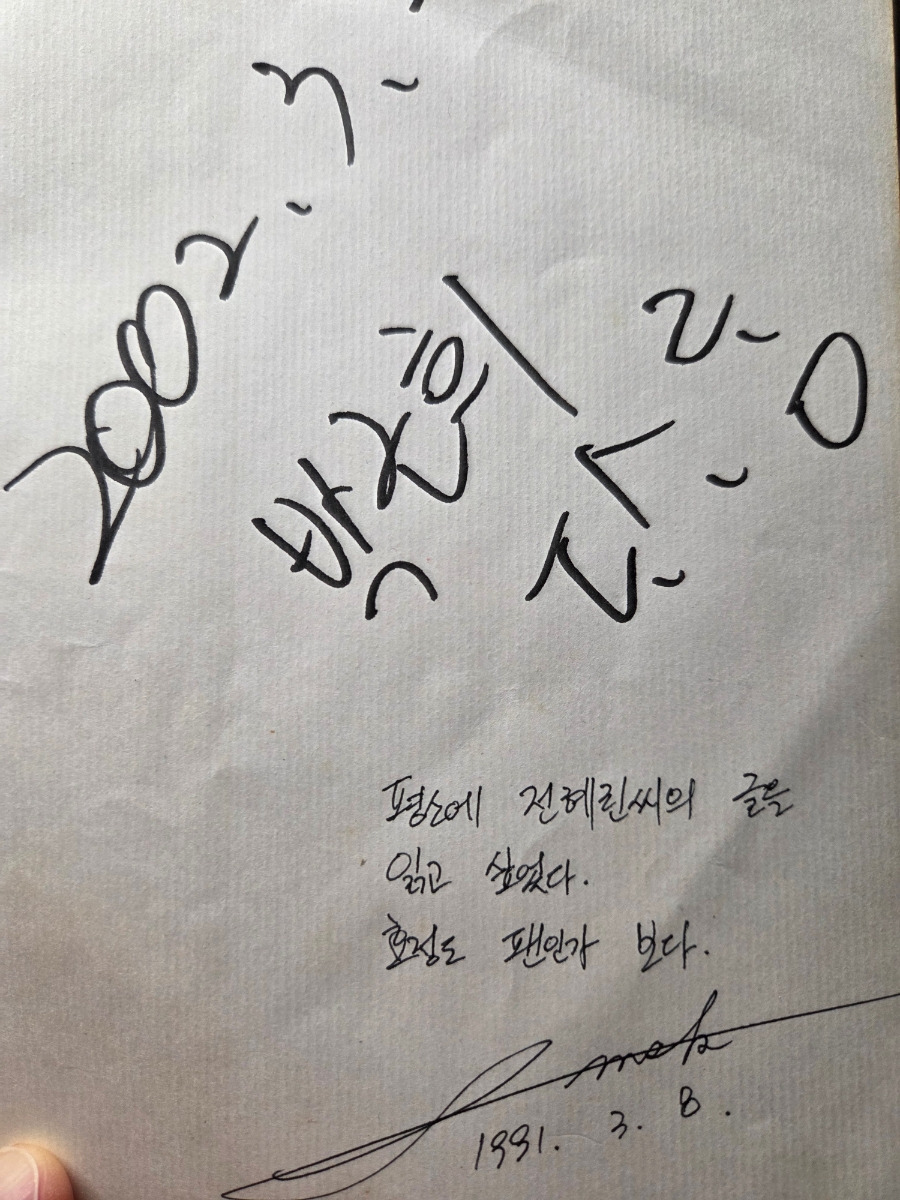 2002. 7.
박근희
드림.
평소에 전혜린씨의 글을
읽고 싶었다.
효정도 팬인가 보다.
1991. 3. 8.